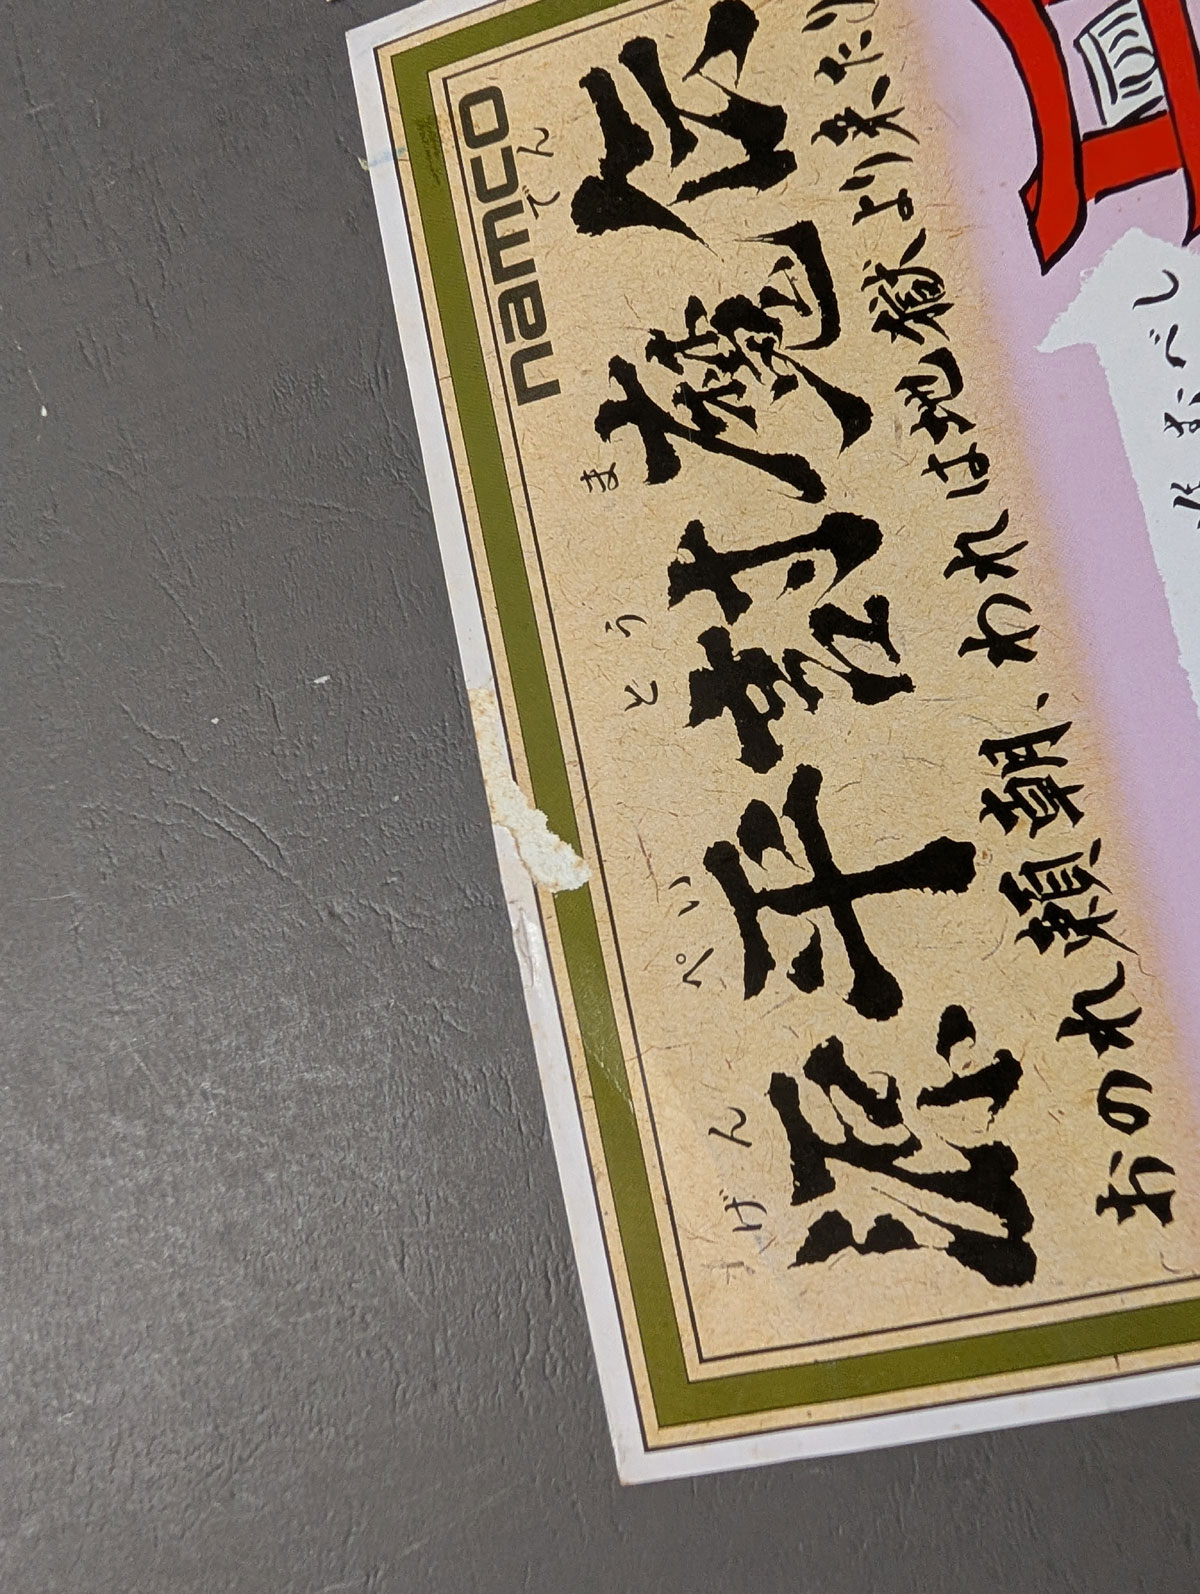 namco
げんぺいとうまでん
源平討魔伝
おのれ頼朝、われは地獄より来たり